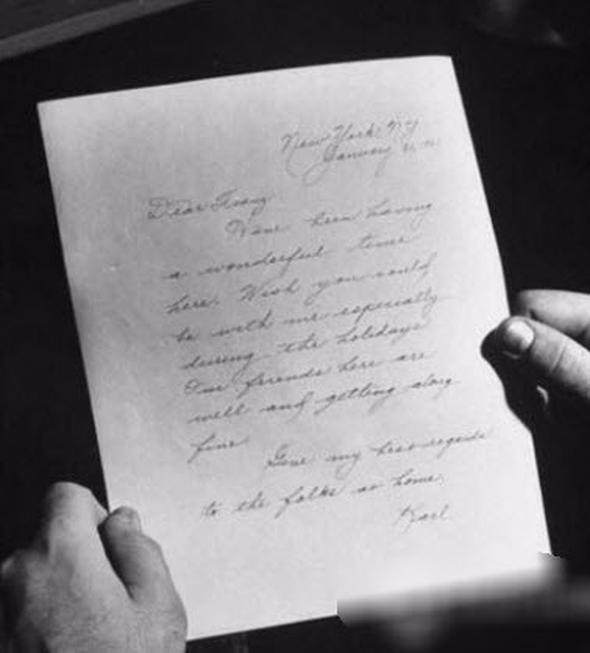 New York, N.Y.
January
Dear Franz
Have been having
a wonderful time
here. Wish you could
be with me especially
during the holidays
Our friends here are
well and getting along
fine
Give my best regards
to the folks at home.
Karl